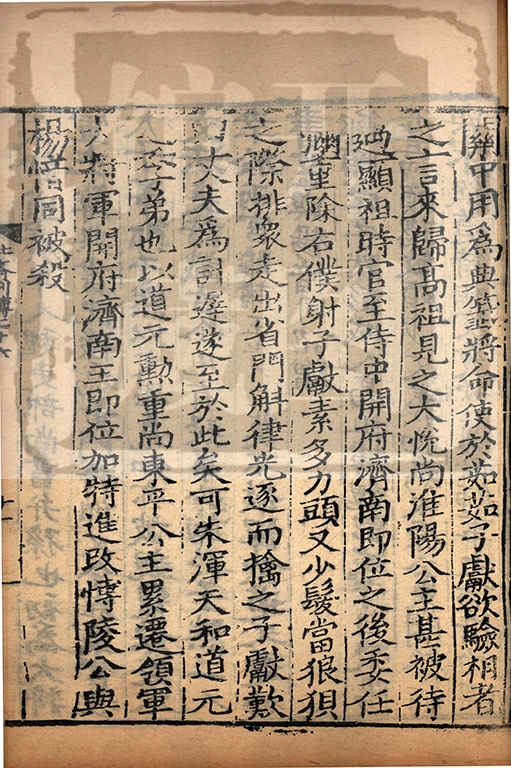 辟中用爲典籖將命使於茹茹子獻欲驗相者
之言來歸髙祖見之大恱尚淮陽公主甚被待
遇顯祖時官至侍中開府濟南即位之後委任
彌重除右僕射子獻素多力頭又少髮當狼狽
之際排衆走出省門斛律光逐而擒之子獻歎
曰大夫爲計遲遂至於此矣可朱渾天和道元
之季弟也以道元勲重尚東平公主累遷領軍
大將軍開府濟南王即位加特進改愽陵公與
楊愔同被殺